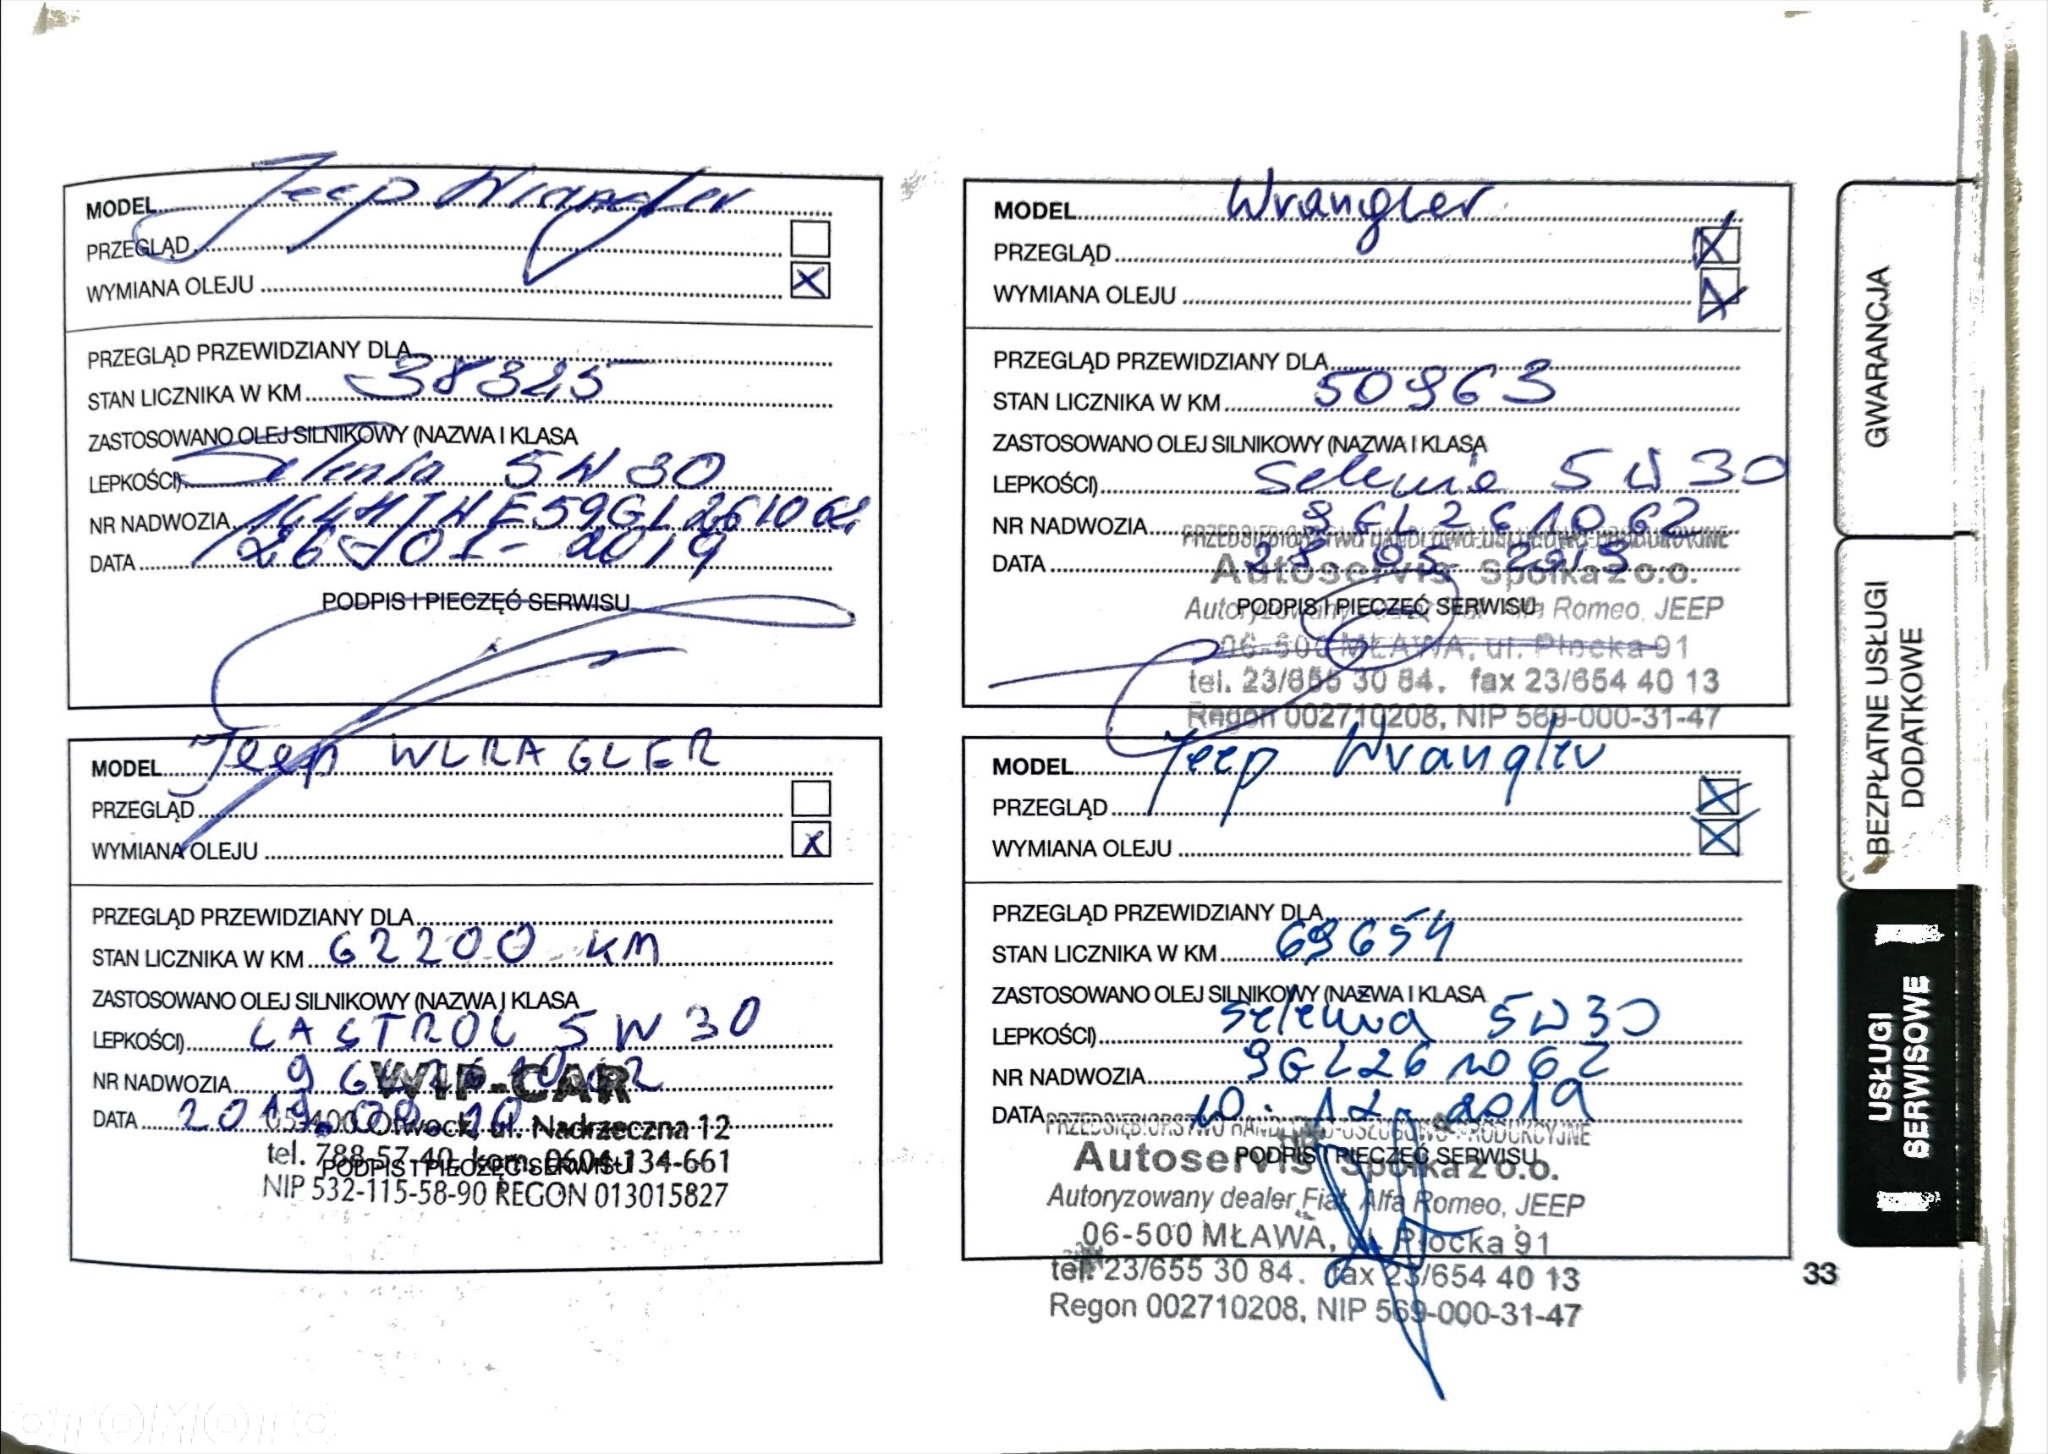 MODEL Jeep Wrangler
PRZEGLĄD
WYMIANA OLEJU X
PRZEGLĄD PRZEWIDZIANY DLA
STAN LICZNIKA W KM 38325
ZASTOSOWANO OLEJ SILNIKOWY (NAZWA I KLASA
LEPKOŚCI) Selenia 5W30
NR NADWOZIA
DATA 26-01-2019
PODPIS I PIECZĘĆ SERWISU
MODEL Wrangler
PRZEGLĄD X
WYMIANA OLEJU X
PRZEGLĄD PRZEWIDZIANY DLA
STAN LICZNIKA W KM 50963
ZASTOSOWANO OLEJ SILNIKOWY (NAZWA I KLASA
LEPKOŚCI) Selenia 5W30
NR NADWOZIA 9GL261062
PRZEDSIĘBIORSTWO HANDLOWO-USŁUGOWO-PRODUKCYJNE
DATA 28.05.2019
Autoservis Spółka z o.o.
PODPIS I PIECZĘĆ SERWISU
Autoryzowany Alfa Romeo, JEEP
06-500 MŁAWA, ul. Płocka 91
tel. 23/655 30 84. fax 23/654 40 13
Regon 002710208, NIP 569-000-31-47
MODEL Jeep WLRAGLER
PRZEGLĄD
WYMIANA OLEJU X
PRZEGLĄD PRZEWIDZIANY DLA
STAN LICZNIKA W KM 62200 KM
ZASTOSOWANO OLEJ SILNIKOWY (NAZWA I KLASA
LEPKOŚCI) CASTROL 5W30
NR NADWOZIA
WIP-CAR
DATA
05-400 Otwock, ul. Nadrzeczna 12
tel. 788-57-40, kom. 0604-134-661
PODPIS I PIECZĘĆ SERWISU
NIP 532-115-58-90 REGON 013015827
MODEL Jeep Wrangler
PRZEGLĄD X
WYMIANA OLEJU X
PRZEGLĄD PRZEWIDZIANY DLA
STAN LICZNIKA W KM 69654
ZASTOSOWANO OLEJ SILNIKOWY (NAZWA I KLASA
LEPKOŚCI) Selenia 5W30
NR NADWOZIA 9GL261062
DATA 10.12.2019
PRZEDSIĘBIORSTWO HANDLOWO-USŁUGOWO-PRODUKCYJNE
Autoservis Spółka z o.o.
PODPIS I PIECZĘĆ SERWISU
Autoryzowany dealer Fiat, Alfa Romeo, JEEP
06-500 MŁAWA, ul. Płocka 91
tel. 23/655 30 84. fax 23/654 40 13
Regon 002710208, NIP 569-000-31-47
GWARANCJA
BEZPŁATNE USŁUGI
DODATKOWE
USŁUGI
SERWISOWE
33
OTOMOTO